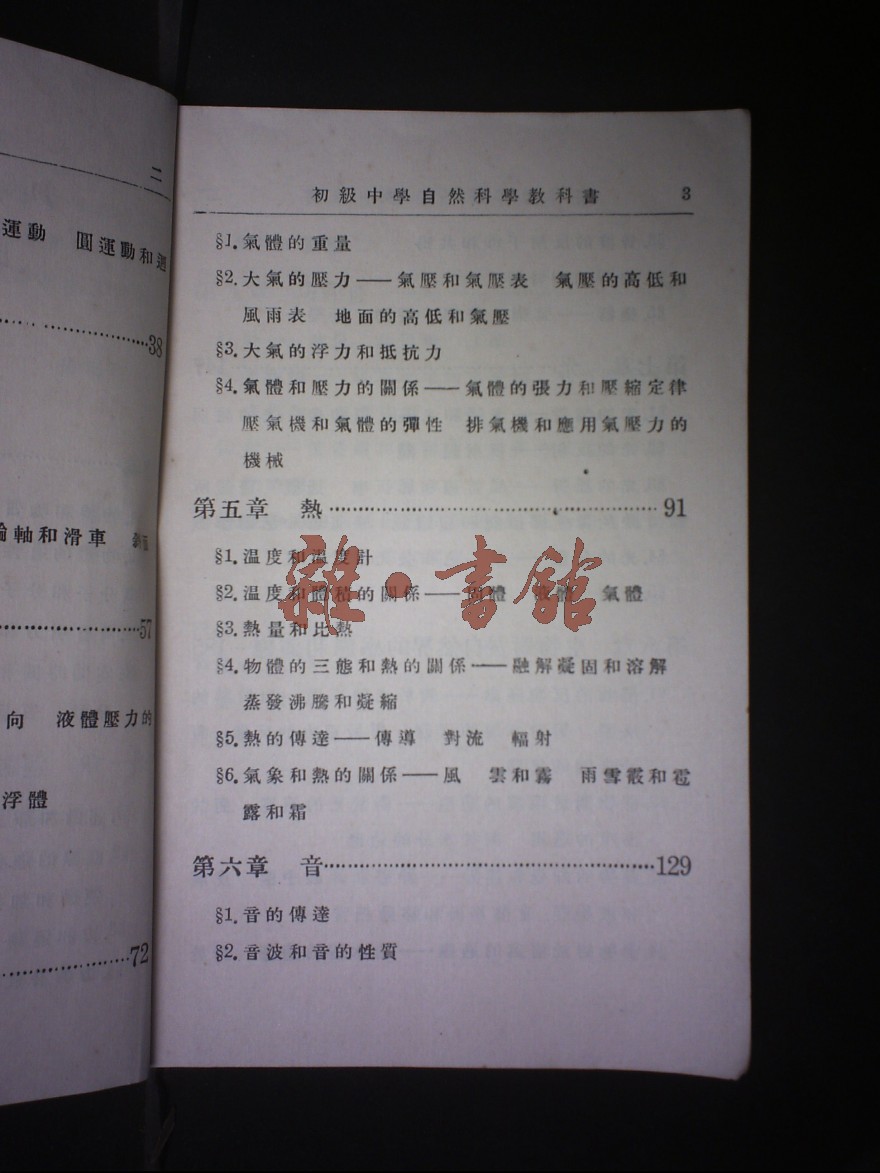 二
運動　圓運動和週
38
輪軸和滑車　斜面
57
向　液體壓力的
浮體
72
初級中學自然科學教科書　3
§1.氣體的重量
§2.大氣的壓力——氣壓和氣壓表　氣壓的高低和
風雨表　地面的高低和氣壓
§3.大氣的浮力和抵抗力
§4.氣體和壓力的關係——氣體的張力和壓縮定律
壓氣機和氣體的彈性　排氣機和應用氣壓力的
機械
第五章　熱……………………………………91
§1.温度和温度計
§2.温度和體積的關係——固體　液體　氣體
§3.熱量和比熱
§4.物體的三態和熱的關係——融解凝固和溶解
蒸發沸騰和凝縮
§5.熱的傳達——傳導　對流　輻射
§6.氣象和熱的關係——風　雲和霧　雨雪霰和雹
露和霜
第六章　音……………………………………129
§1.音的傳達
§2.音波和音的性質
雜·書館